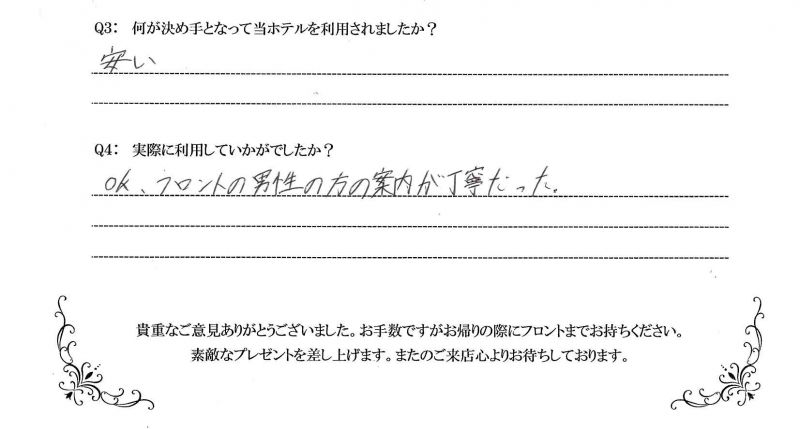 Q3: 何が決め手となって当ホテルを利用されましたか？
安い
Q4: 実際に利用していかがでしたか？
OK、フロントの男性の方の案内が丁寧だった。
貴重なご意見ありがとうございました。お手数ですがお帰りの際にフロントまでお持ちください。
素敵なプレゼントを差し上げます。またのご来店心よりお待ちしております。